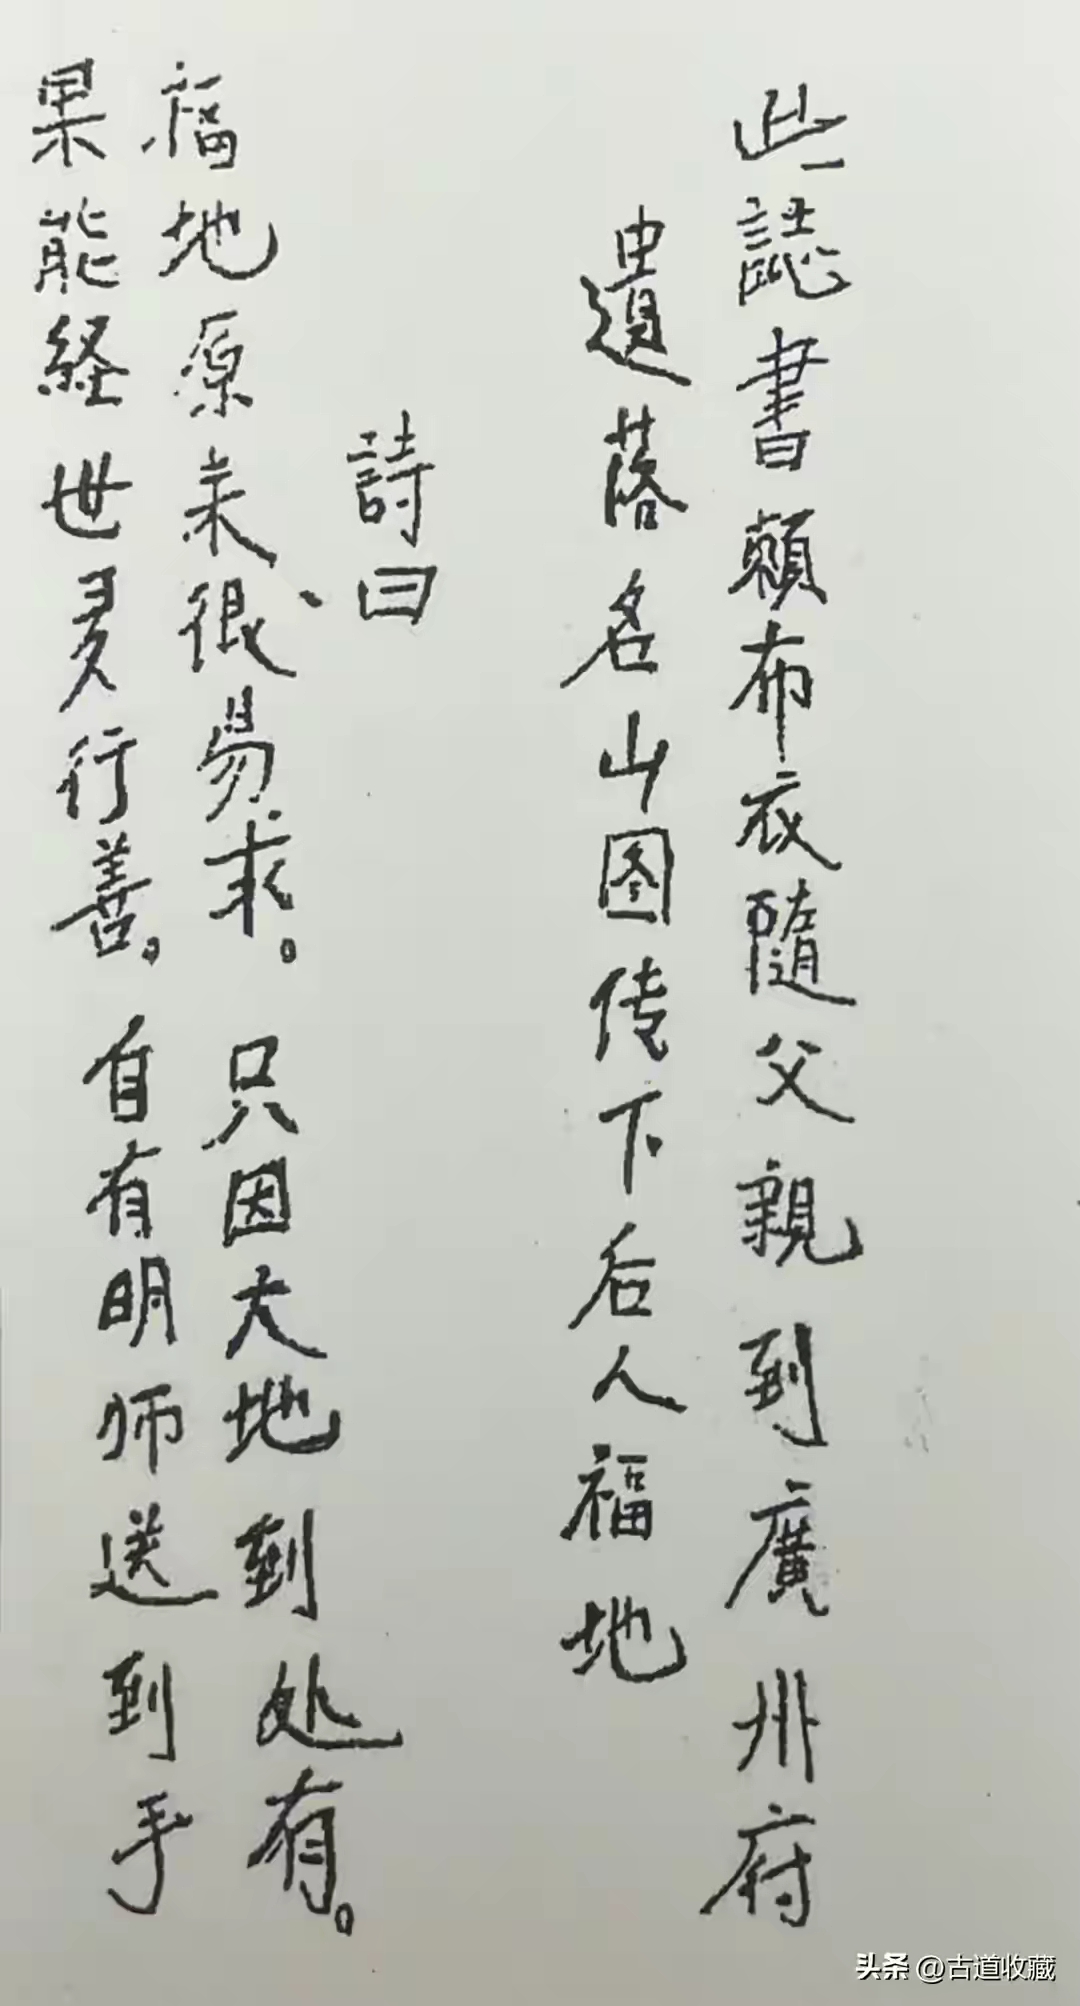 此誌書賴布衣隨父親到廣州府
遺落名山图传下后人福地
詩曰
福地原来很易求。只因大地到处有。
果能経世多行善。自有明师送到手
头条 @古道收藏